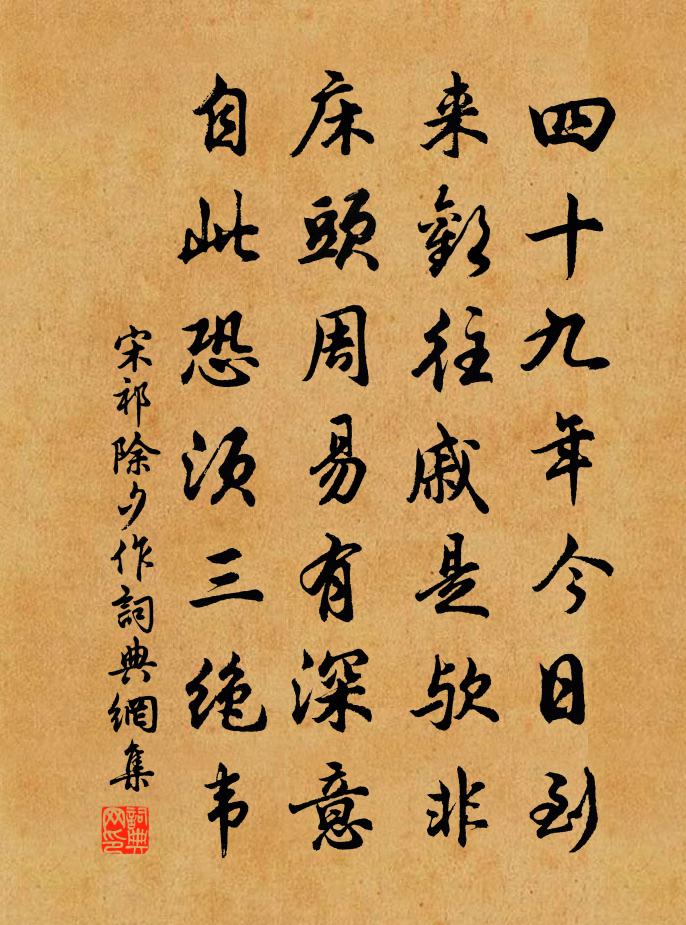 四十九年今日到
来歡往戚是欤非
床頭周易有深意
自此恐须三绝韦
宋祁除夕作詞典網集
詞典网印